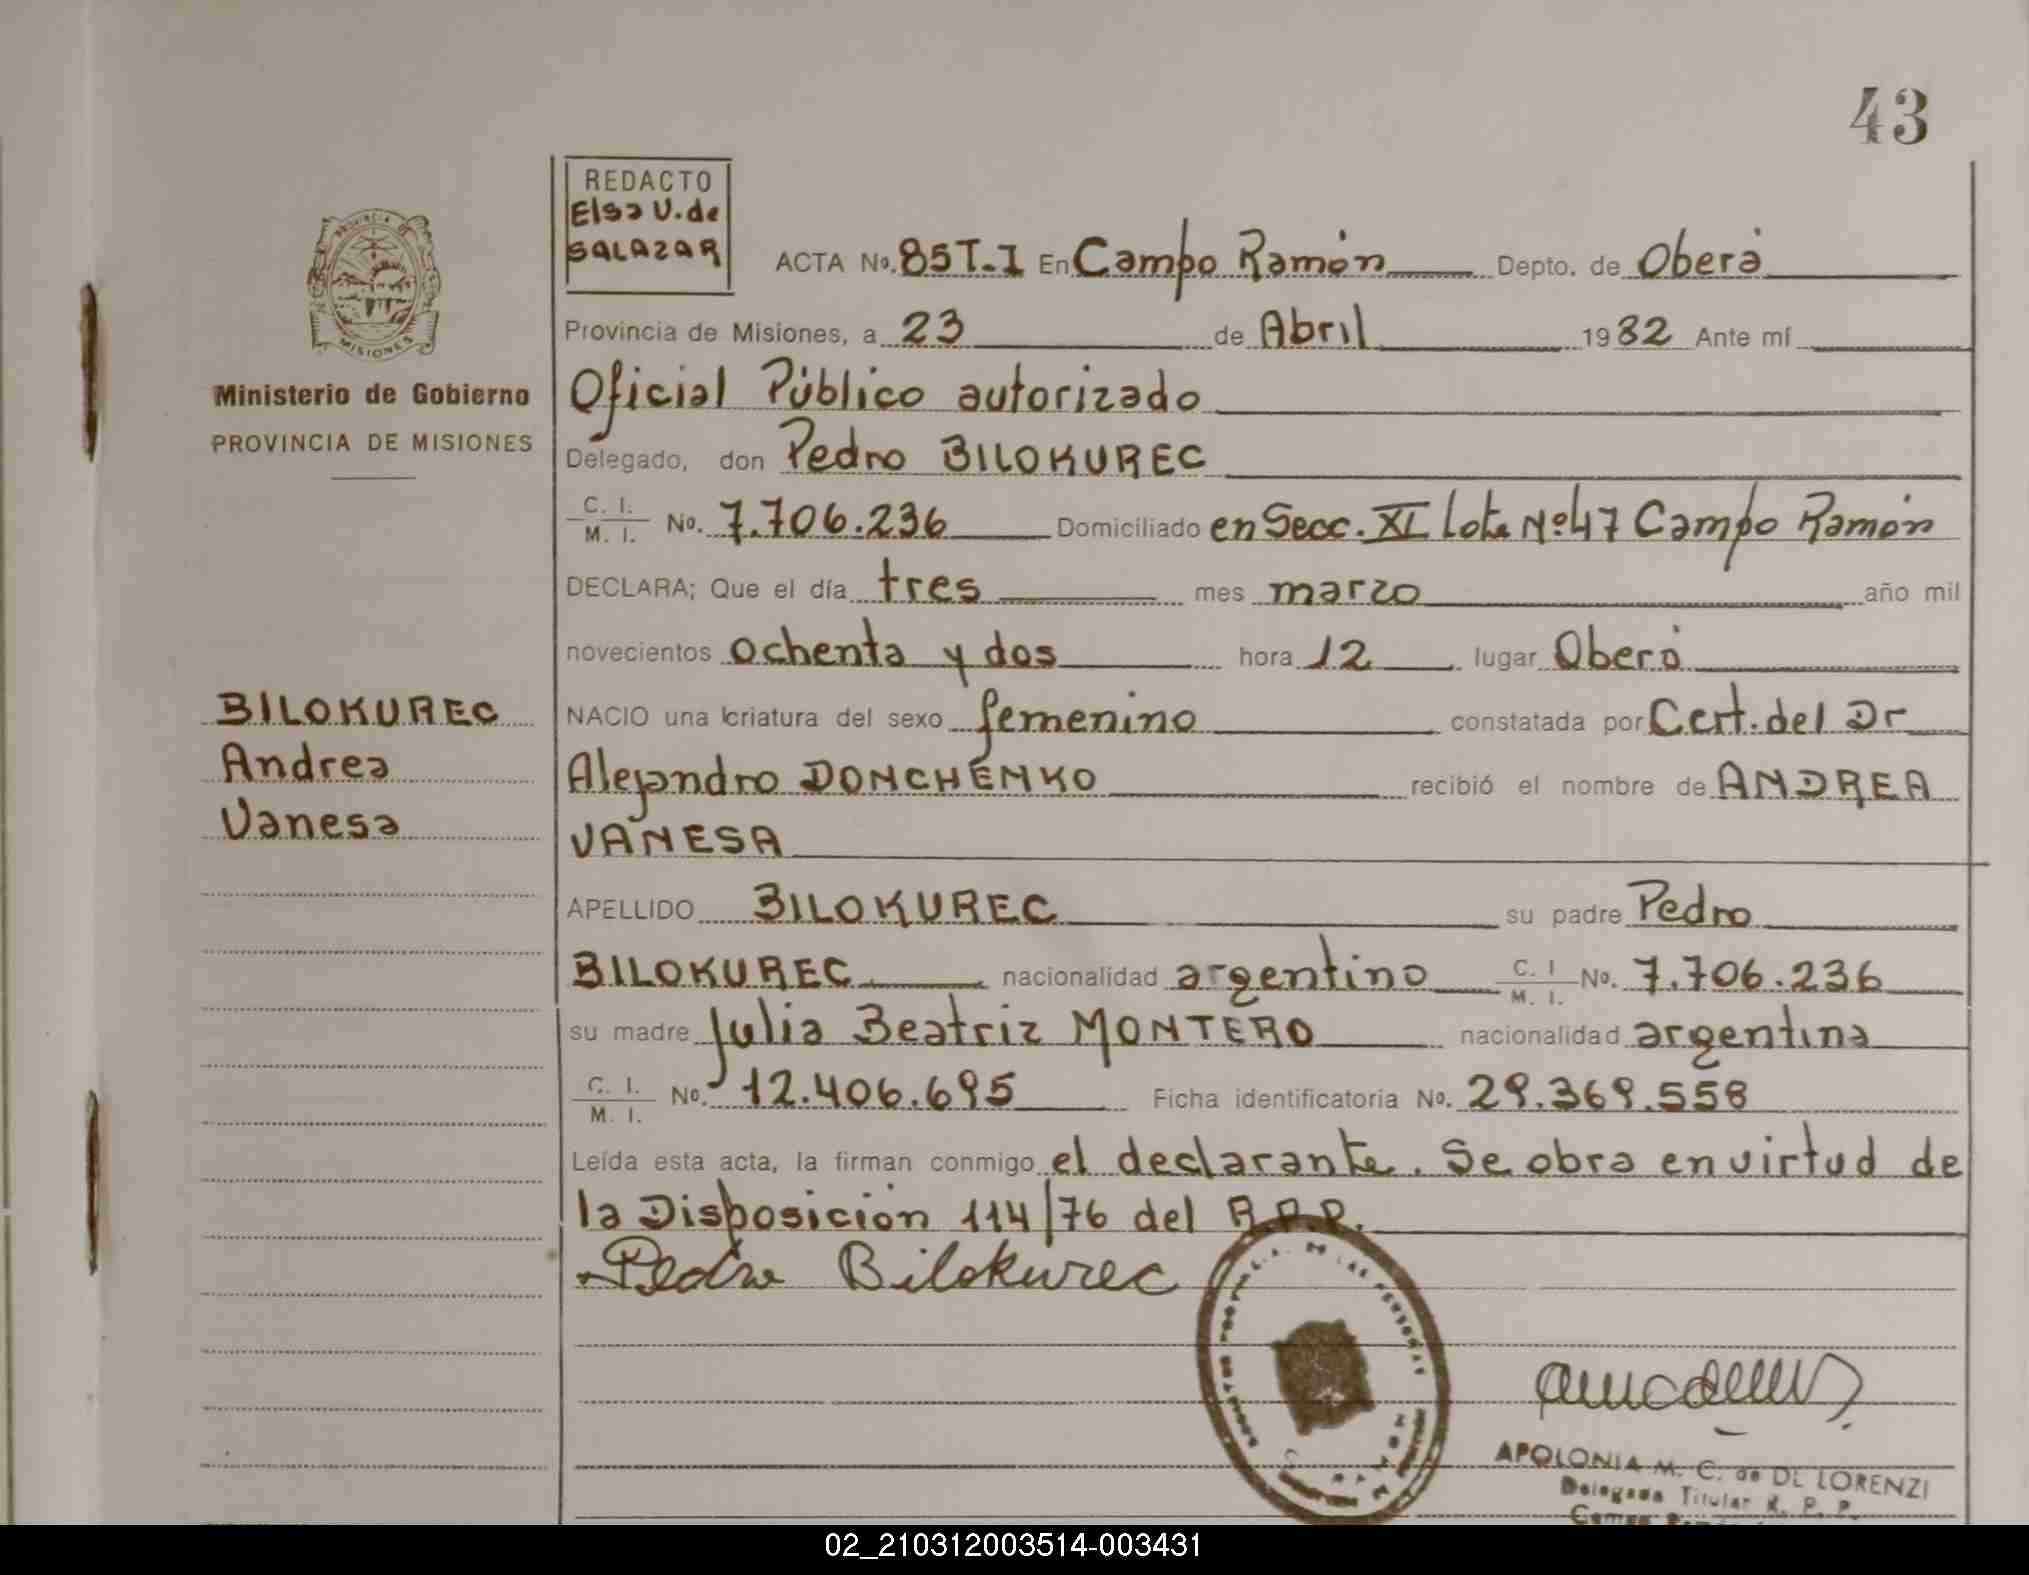 43
REDACTO
Elsa V. de
SALAZAR
PROVINCIA DE
MISIONES
Ministerio de Gobierno
PROVINCIA DE MISIONES
ACTA No. 85T-I En Campo Ramón Depto. de Oberá
Provincia de Misiones, a 23 de Abril 1982 Ante mí
Oficial Público autorizado
Delegado, don Pedro BILOKUREC
C. I. / M. I. No. 7.706.236 Domiciliado en Secc. XI Lote Nº 47 Campo Ramón
DECLARA; Que el día tres mes marzo año mil
novecientos ochenta y dos hora 12 lugar Oberá
BILOKUREC
Andrea
Vanesa
NACIO una criatura del sexo femenino constatada por Cert. del Dr
Alejandro DONCHENKO recibió el nombre de ANDREA
VANESA
APELLIDO BILOKUREC su padre Pedro
BILOKUREC nacionalidad argentino C. I / M. I. No. 7.706.236
su madre Julia Beatriz MONTERO nacionalidad argentina
C. I. / M. I. No. 12.406.695 Ficha identificatoria No. 29.369.558
Leída esta acta, la firman conmigo el declarante. Se obra en virtud de
la Disposición 114/76 del
Pedro Bilokurec
APOLONIA M. C. de DE LORENZI
Delegada Titular R. P. P.
02_210312003514-003431